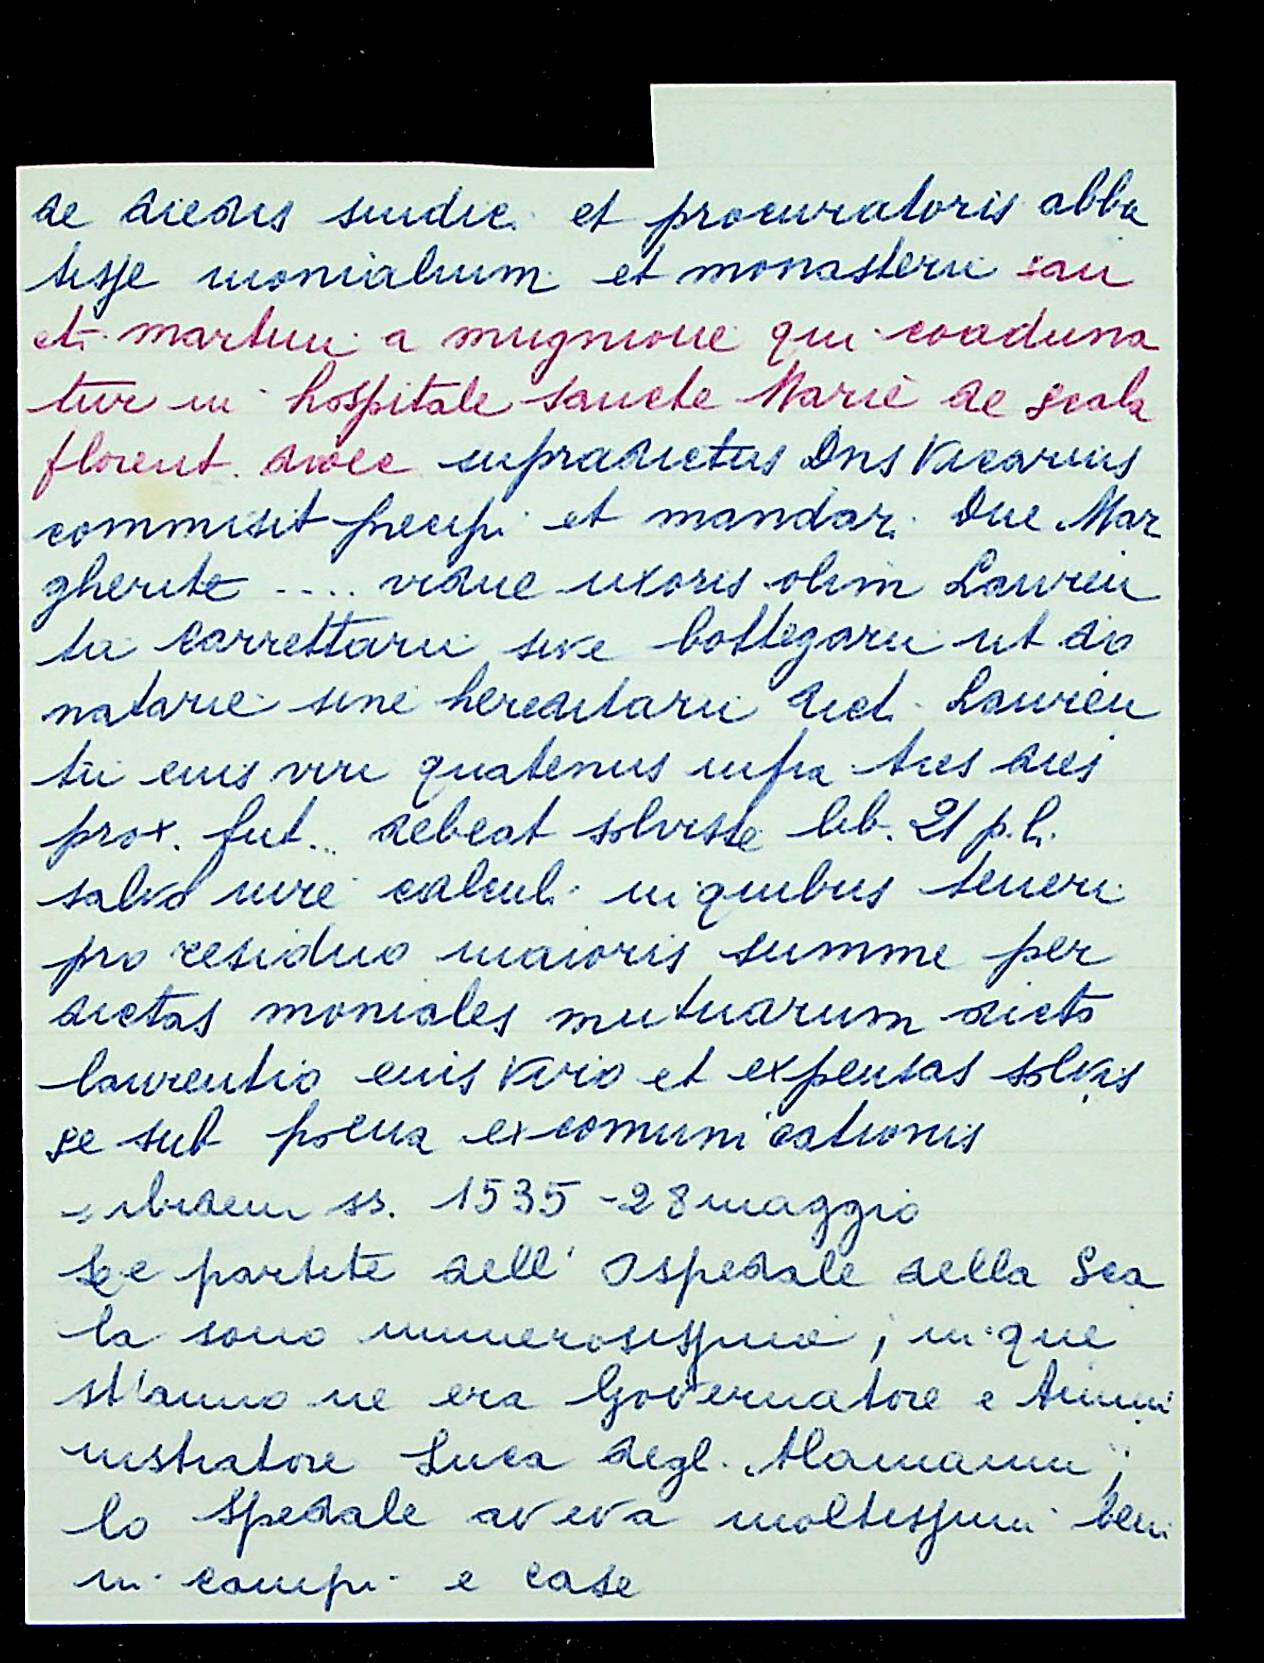 de diedis sindic. et procuratoris abba
tisse monialium et monasterii san
cti martini a mugnione qui coaduna
tur in hospitale sancte Marie de Scala
florent. supradictus Dns Vicarius
commisit precipi et mandar. Dne Mar
gherite .... vidue uxoris olim Lauren
tii Carrettarii sive bottegarii ut do
natarie sine hereditarii dict. Lauren
tii eius viri quatenus infra tres dies
prox. fut... debeat solvisse lib. 21 p.l.
salvo iure calculi in quibus teneri
pro residuo maioris summe per
dictas moniales mutuarum dicto
laurentio eius viro et expensas solvis
se sub poena excomunicationis
- ibidem ss. 1535 - 28 maggio
Le partite dell' Ospedale della Sca
la sono numerosissime; in que
st'anno ne era Governatore e Ammi
nistratore Luca degl. Alamanni;
lo Spedale aveva moltissimi beni
in campi e case